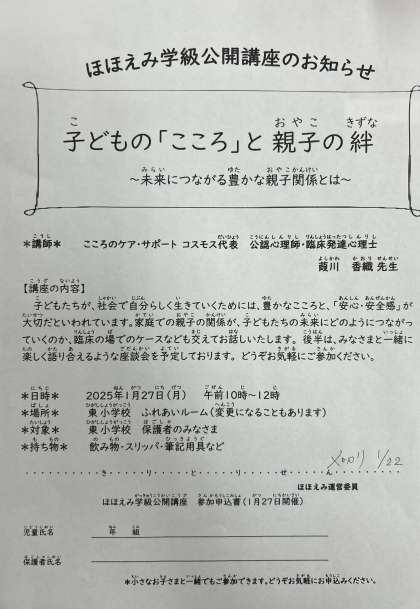 ほほえみ学級公開講座のお知らせ
子どもの「こころ」と 親子の 絆
～未来につながる豊かな親子関係とは～
＊講師＊ こころのケア・サポート コスモス代表 公認心理師・臨床発達心理士
葭川 香織 先生
【講座の内容】
子どもたちが、社会で自分らしく生きていくためには、豊かなこころと、「安心・安全感」が
大切だといわれています。家庭での親子の関係が、子どもたちの未来にどのようにつながっ
ていくのか、臨床の場でのケースなども交えてお話しいたします。後半は、みなさまと一緒に
楽しく語り合えるような座談会を予定しております。どうぞお気軽にご参加ください。
＊日時＊ 2025年1月27日(月) 午前10時～12時
＊場所＊ 東小学校 ふれあいルーム(変更になることもあります)
＊対象＊ 東小学校 保護者のみなさま
＊持ち物＊ 飲み物・スリッパ・筆記用具など
〆切り 1/22
き り と り せ ん
ほほえみ運営委員
ほほえみ学級公開講座 参加申込書(1月27日開催)
児童氏名 年 組
保護者氏名
＊小さなお子さまと一緒でもご参加できます。どうぞお気軽にお申込みください。